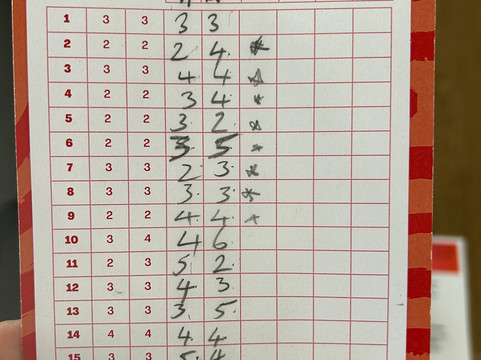 1 3 3 3 3
2 2 2 2 4 *
3 3 3 4 4 *
4 2 2 3 4 *
5 2 2 3 2 *
6 2 2 3 5 *
7 3 3 2 3 *
8 3 3 3 3 *
9 2 2 4 4 *
10 3 4 4 6
11 2 3 5 2
12 3 3 4 3
13 3 3 3 5
14 4 4 4 4
15 3 3 5 4